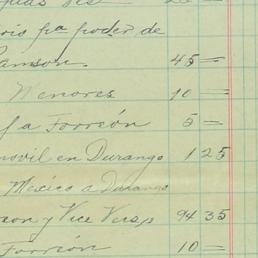 pa poder de
45 =
Menores 10 =
a Torreón 5 =
movil en Durango 1 25
Mexico a Durango
y Vice Versa 94 35
Torreón 10 =